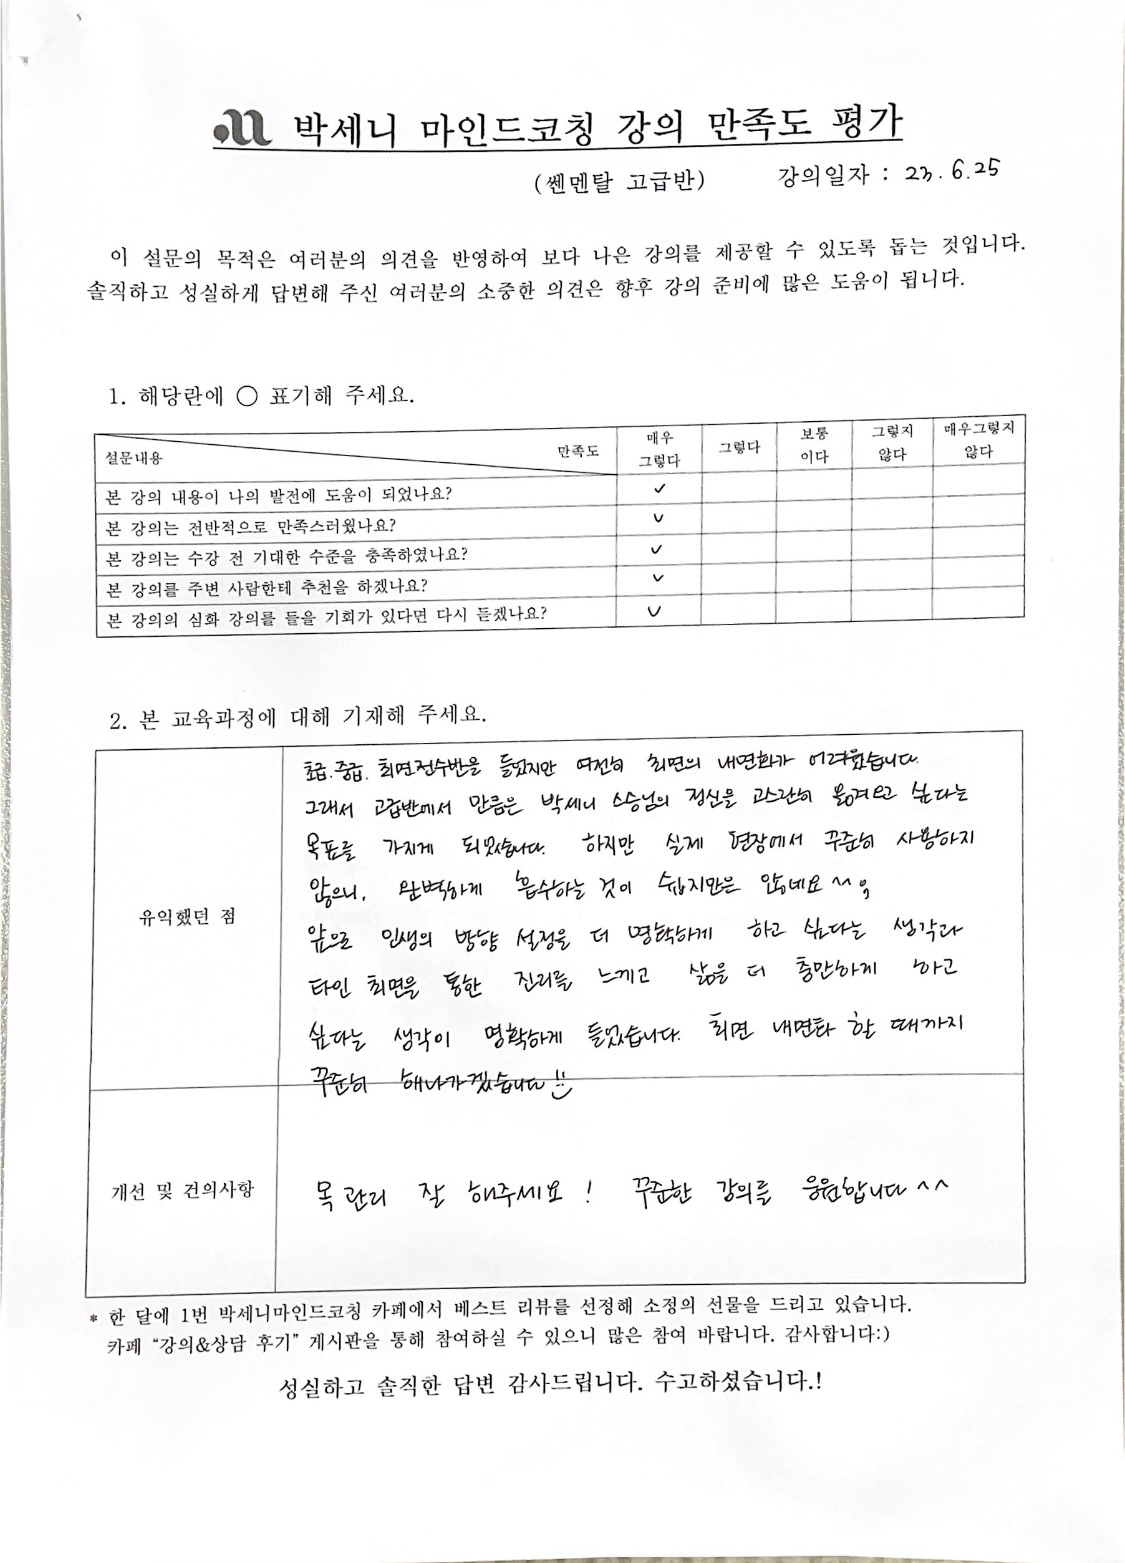 박세니 마인드코칭 강의 만족도 평가
(쎈멘탈 고급반) 강의일자 : 23. 6. 25
이 설문의 목적은 여러분의 의견을 반영하여 보다 나은 강의를 제공할 수 있도록 돕는 것입니다.
솔직하고 성실하게 답변해 주신 여러분의 소중한 의견은 향후 강의 준비에 많은 도움이 됩니다.
1. 해당란에 ○ 표기해 주세요.
설문내용 만족도 매우 그렇다 그렇다 보통 이다 그렇지 않다 매우그렇지 않다
본 강의 내용이 나의 발전에 도움이 되었나요? ✓
본 강의는 전반적으로 만족스러웠나요? ✓
본 강의는 수강 전 기대한 수준을 충족하였나요? ✓
본 강의를 주변 사람한테 추천을 하겠나요? ✓
본 강의의 심화 강의를 들을 기회가 있다면 다시 듣겠나요? ✓
2. 본 교육과정에 대해 기재해 주세요.
유익했던 점
초급. 중급. 최면전수반을 들었지만 여전히 최면의 내면화가 어려웠습니다.
그래서 고급반에서 만큼은 박세니 스승님의 정신을 고스란히 옮겨오고 싶다는
목표를 가지게 되었습니다. 하지만 실제 현장에서 꾸준히 사용하지
않으니, 완벽하게 흡수하는 것이 쉽지만은 않네요 ^^;
앞으로 인생의 방향 설정을 더 명확하게 하고 싶다는 생각과
타인 최면을 통한 진리를 느끼고 삶을 더 충만하게 하고
싶다는 생각이 명확하게 들었습니다. 최면 내면화 할 때까지
꾸준히 해나가겠습니다!!
개선 및 건의사항
목관리 잘 해주세요! 꾸준한 강의를 응원합니다 ^^
* 한 달에 1번 박세니마인드코칭 카페에서 베스트 리뷰를 선정해 소정의 선물을 드리고 있습니다.
카페 “강의&상담 후기” 게시판을 통해 참여하실 수 있으니 많은 참여 바랍니다. 감사합니다:)
성실하고 솔직한 답변 감사드립니다. 수고하셨습니다.!